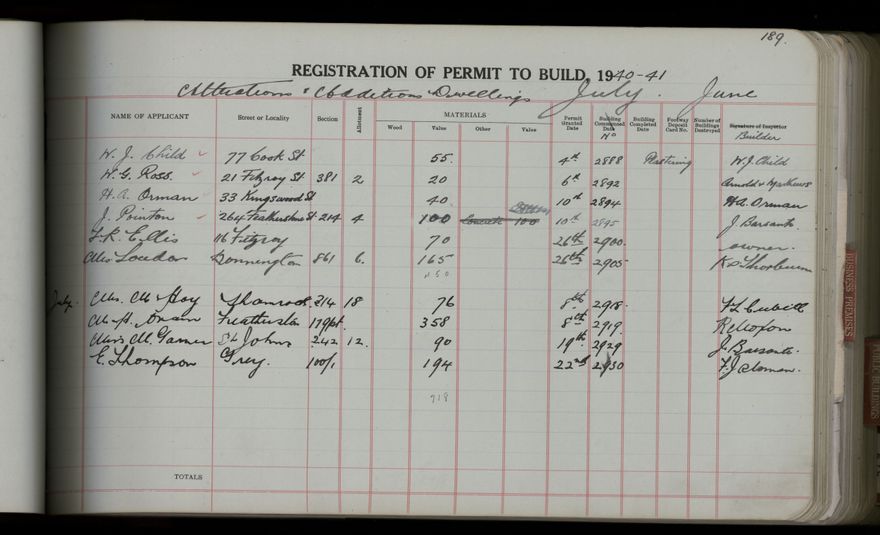 189.
REGISTRATION OF PERMIT TO BUILD, 1940-41
Alterations & Additions Dwellings July. June
NAME OF APPLICANT Street or Locality Section Allotment MATERIALS Wood Value Other Value Permit Granted Date Building Commenced Date No Building Completed Date Footway Deposit Card No. Number of Buildings Destroyed Signature of Inspector Builder
W. J. Child 77 Cook St 55. 4th 2888 Plastering W. J. Child
W. G. Ross. 21 Fitzroy St 381 2 20 6th 2892 Arnold & Mathews
H. A. Orman 33 Kingswood St 40 10th 2894 H. A. Orman
J. Pointon 264 Featherston St 214 4 100 100 10th 2895 J. Barsanti
F. R. Ellis 116 Fitzroy 70 26th 2900. owner.
Mrs Loudon Bonnington 861 6. 165 26th 2905
450
July. Mrs. M. Hay Shamrock 214 18 76 8th 2918.
Featherston 179pt. 358 8th 2919.
Mrs M. Garner St Johns 242 12. 90 19th 2929 J. Barsanti.
E. Thompson Grey. 100/1 194 22nd 2930
718
TOTALS
BUSINESS PREMISES
PUBLIC BUILDINGS